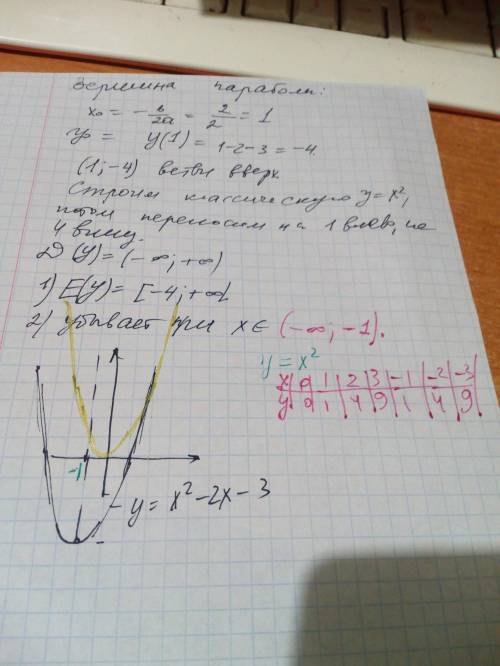 Вершина параболы:
x₀ = -b/2a = 2/2 = 1
y₀ = y(1) = 1-2-3 = -4
(1;-4) ветви вверх
Строим классическую y=x²,
потом переносим на 1 влево, на
4 вниз.
D(y)=(-∞;+∞)
1) E(y)= [-4;+∞[
2) убывает при x∈ (-∞;-1).
y = x²
x|0|1|2|3|-1|-2|-3
y|0|1|4|9|1|4|9|
-1
y = x²-2x-3